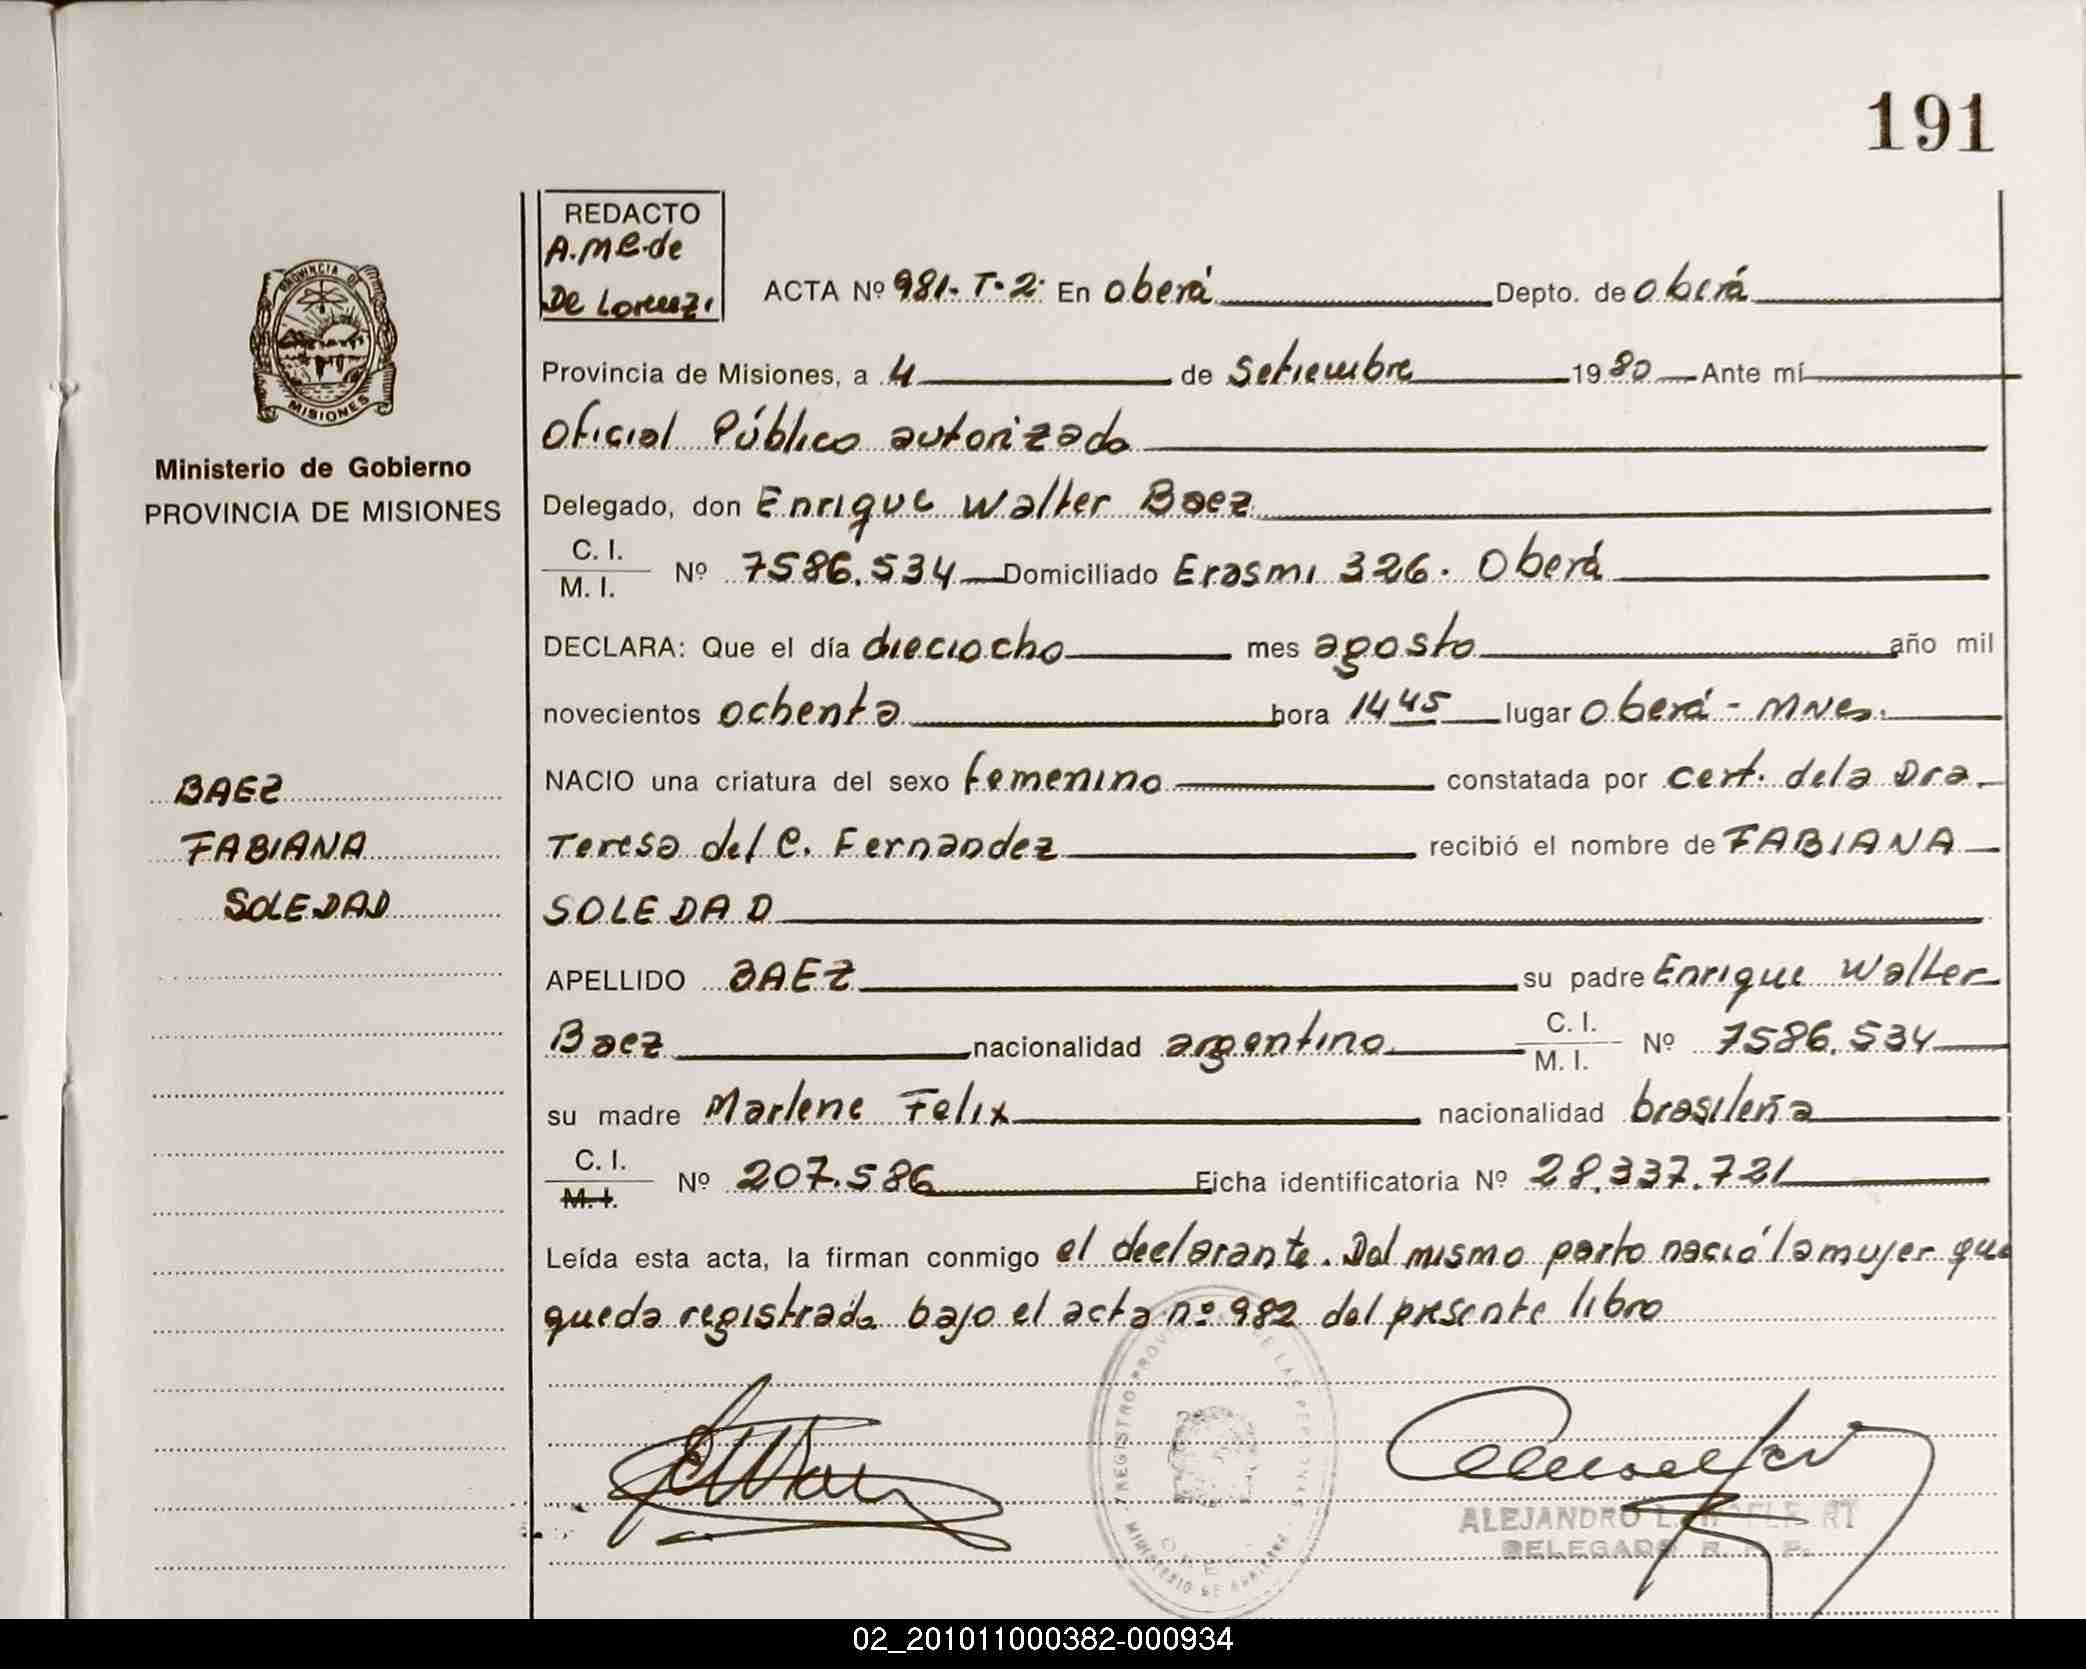 191
REDACTO
A.M.C. de
De Lorenzi
ACTA Nº 981-T-2- En Oberá Depto. de Oberá
Provincia de Misiones, a 4 de Setiembre 1980 Ante mí
Oficial Público autorizado
PROVINCIA DE
MISIONES
Ministerio de Gobierno
PROVINCIA DE MISIONES
Delegado, don Enrique Walter Baez
C. I.
M. I.
Nº 7586.534 Domiciliado Erasmi 326. Oberá
DECLARA: Que el día dieciocho mes agosto año mil
novecientos ochenta hora 1445 lugar Oberá - Mnes.
BAEZ
FABIANA
SOLEDAD
NACIO una criatura del sexo femenino constatada por cert. de la Dra.
Teresa del C. Fernandez recibió el nombre de FABIANA
SOLEDAD
APELLIDO BAEZ su padre Enrique Walter
Baez nacionalidad argentino C. I. M. I. Nº 7586.534
su madre Marlene Felix nacionalidad brasileña
C. I.
M. I.
Nº 207.586 Ficha identificatoria Nº 28.337.721
Leída esta acta, la firman conmigo el declarante. Del mismo parto nació la mujer que
queda registrada bajo el acta nº 982 del presente libro
REGISTRO
MINISTERIO DE
ALEJANDRO L.
DELEGADO R. P.
02_201011000382-000934